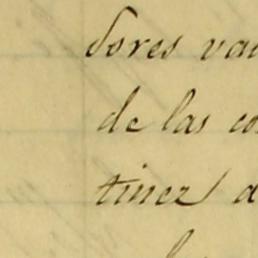 dores va
de las co
tinez a